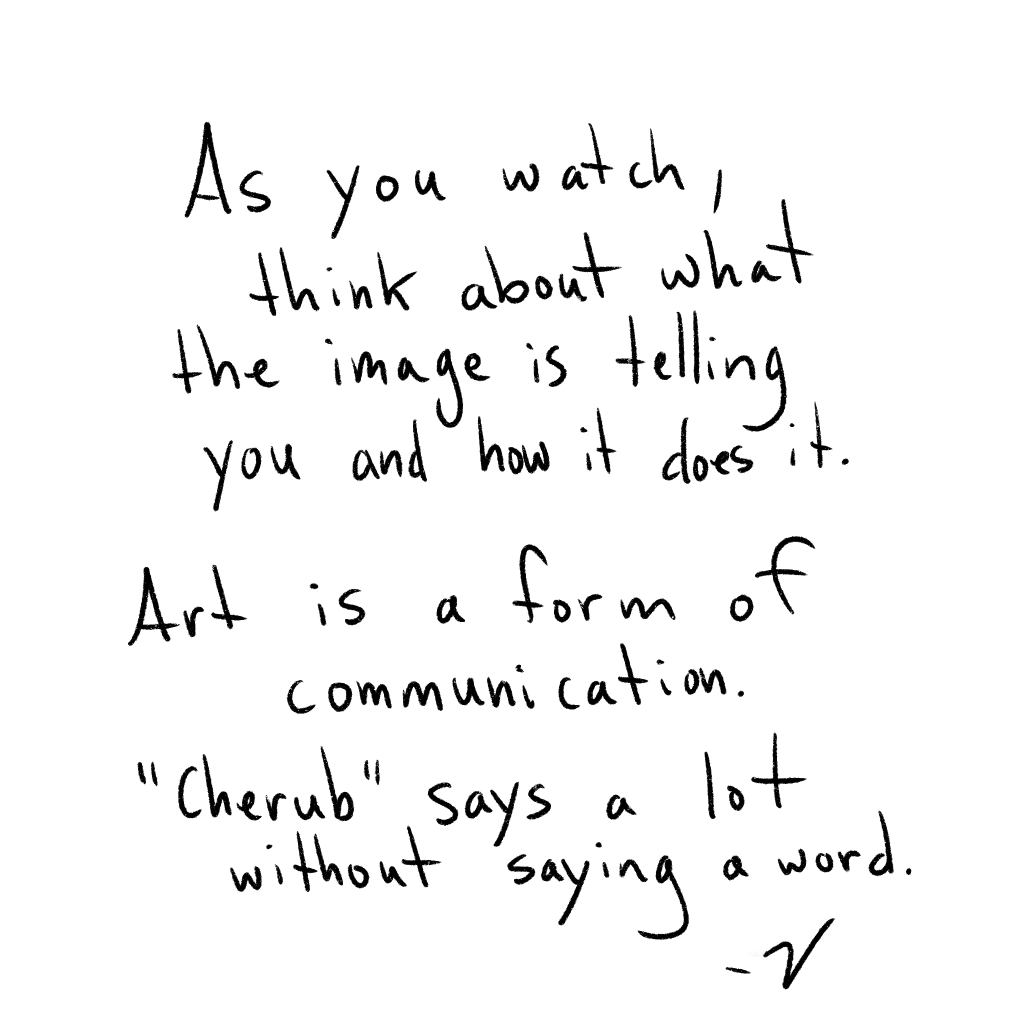 As you watch,
think about what
the image is telling
you and how it does it.
Art is a form of
communication.
"Cherub" says a lot
without saying a word.
-V